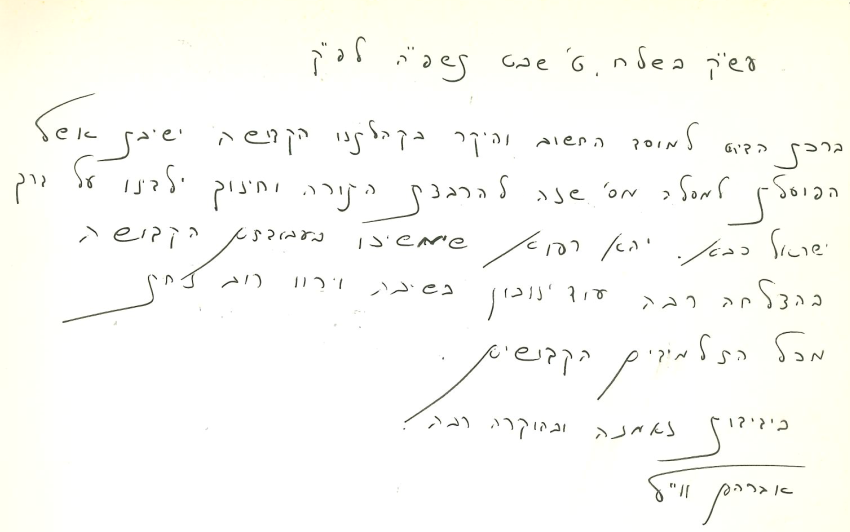 עש"ק בשלח, ט' שבט תשפ"ה לפ"ק
ברכת הדיוט למוסד החשוב והיקר בקהלתנו הקדושה ישיבת אשל
הפועלת למעלה מס' שנה להרבצת התורה וחינוך ילדנו על דרך
ישראל סבא. יהא רעוא שימשיכו בעבודתא הקדושה
בהצלחה רבה עוד ינובון בשיבה וירוו רוב נחת
מכל התלמידים הקדושים.
בידידות נאמנה ובהוקרה רבה.
אברהם ווי"ל